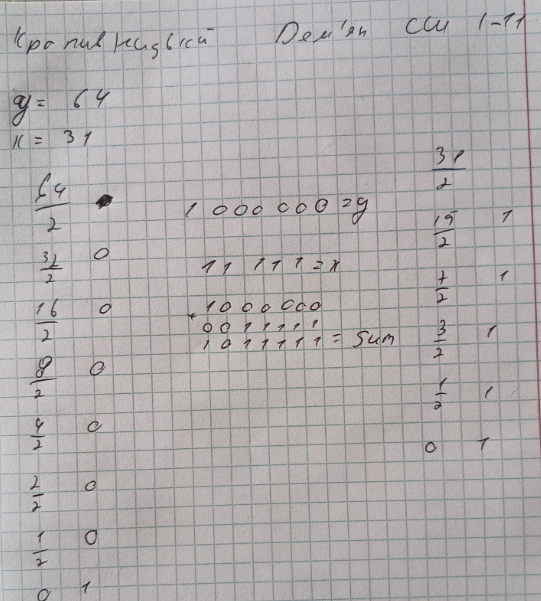 Кропивницький Дем'ян ССИ 1-11
y = 64
x = 31
64/2
32/2 0
16/2 0
8/2 0
4/2 0
2/2 0
1/2 0
0 1
1000000 = y
11111 = x
+ 1000000
0011111
1011111 = Sum
31/2
15/2 1
7/2 1
3/2 1
1/2 1
0 1